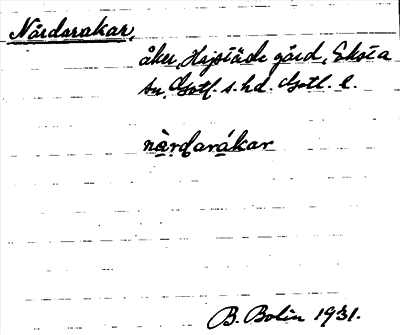 Nårdarakar,
åker, Hajstäde gård, Eksta
sn, Gotl. s. hd. Gotl. l.
nàrdarákar
B. Bolin 1931.